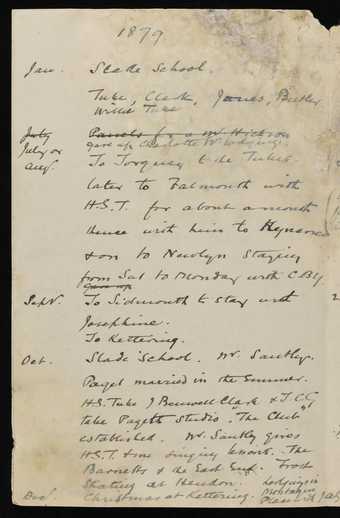 1879
Jan. Slade School.
Tuke, Clark, James, Butler,
Willie Tuke
July Panels for a Mr Hickson
July or gave up Charlotte St lodgings.
Aug. To Torquay to the Tukes
later to Falmouth with
H.S.T. for about a month
thence with him to Kynance
& on to Newlyn Staying
from Sat to Monday with
gave up
Sept. To Sidmouth to stay with
Josephine.
To Kettering.
Oct. Slade School. Mr. Santley.
Paget married in the Summer.
H.S. Tuke J Benwell Clark & T.C.G
take Pagets Studio. "The Club"
established. Mr. Santley gives
H.S.T. & me singing lessons. The
& the East End. Frost
Skating at Hendon. Lodgings in
Dec. Christmas at Kettering. Montague
Place